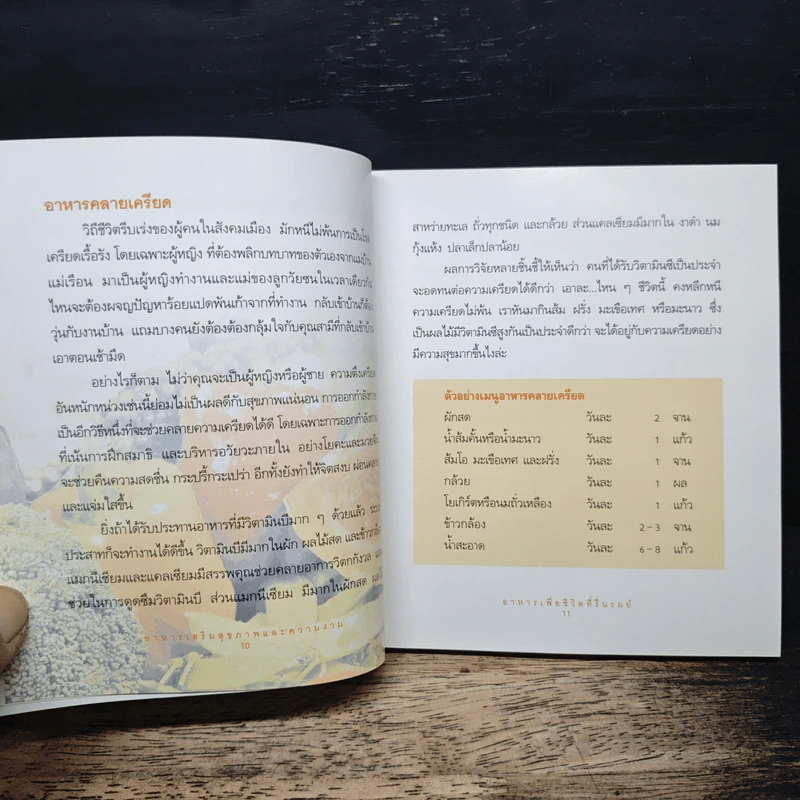 อาหารคลายเครียด
วิถีชีวิตรีบเร่งของผู้คนในสังคมเมือง มักหนีไม่พ้นการเป็นโรค
เครียดเรื้อรัง โดยเฉพาะผู้หญิง ที่ต้องพลิกบทบาทของตัวเองจากแม่บ้าน
แม่เรือน มาเป็นผู้หญิงทำงานและแม่ของลูกวัยซนในเวลาเดียวกัน
ไหนจะต้องผจญปัญหาร้อยแปดพันเก้าจากที่ทำงาน กลับเข้าบ้านก็ต้อง
วุ่นกับงานบ้าน แถมบางคนยังต้องต้องกลุ้มใจกับคุณสามีที่กลับเข้าบ้าน
เอาตอนเช้ามืด
อย่างไรก็ตาม ไม่ว่าคุณจะเป็นผู้หญิงหรือผู้ชาย ความตึงเครียด
อันหนักหน่วงเช่นนี้ย่อมไม่เป็นผลดีกับสุขภาพแน่นอน การออกกำลังกาย
เป็นอีกวิธีหนึ่งที่จะช่วยคลายความเครียดได้ดี โดยเฉพาะการออกกำลังกาย
ที่เน้นการฝึกสมาธิ และบริหารอวัยวะภายใน อย่างโยคะและมวยจีน
จะช่วยคืนความสดชื่น กระปรี้กระเปร่า อีกทั้งยังทำให้จิตสงบ ผ่อนคลาย
และแจ่มใสขึ้น
ยิ่งถ้าได้รับประทานอาหารที่มีวิตามินบีมาก ๆ ด้วยแล้ว ระบบ
ประสาทก็จะทำงานได้ดีขึ้น วิตามินบีมีมากในผัก ผลไม้สด และข้าวกล้อง
แมกนีเซียมและแคลเซียมมีสรรพคุณช่วยคลายอาการวิตกกังวล และ
ช่วยในการดูดซึมวิตามินบี ส่วนแมกนีเซียม มีมากในผักสด ผลไม้
อาหารเสริมสุขภาพและความงาม
10
สาหร่ายทะเล ถั่วทุกชนิด และกล้วย ส่วนแคลเซียมมีมากใน งาดำ นม
กุ้งแห้ง ปลาเล็กปลาน้อย
ผลการวิจัยหลายชิ้นชี้ให้เห็นว่า คนที่ได้รับวิตามินซีเป็นประจำ
จะอดทนต่อความเครียดได้ดีกว่า เอาละ...ไหน ๆ ชีวิตนี้ คงหลีกหนี
ความเครียดไม่พ้น เราหันมากินส้ม ฝรั่ง มะเขือเทศ หรือมะนาว ซึ่ง
เป็นผลไม้มีวิตามินซีสูงกันเป็นประจำดีกว่า จะได้อยู่กับความเครียดอย่าง
มีความสุขมากขึ้นไงล่ะ
ตัวอย่างเมนูอาหารคลายเครียด
ผักสด วันละ 2 จาน
น้ำส้มคั้นหรือน้ำมะนาว วันละ 1 แก้ว
ส้มโอ มะเขือเทศ และฝรั่ง วันละ 1 จาน
กล้วย วันละ 1 ผล
โยเกิร์ตหรือนมถั่วเหลือง วันละ 1 แก้ว
ข้าวกล้อง วันละ 2-3 จาน
น้ำสะอาด วันละ 6-8 แก้ว
อาหารเพื่อชีวิตที่รื่นรมย์
11